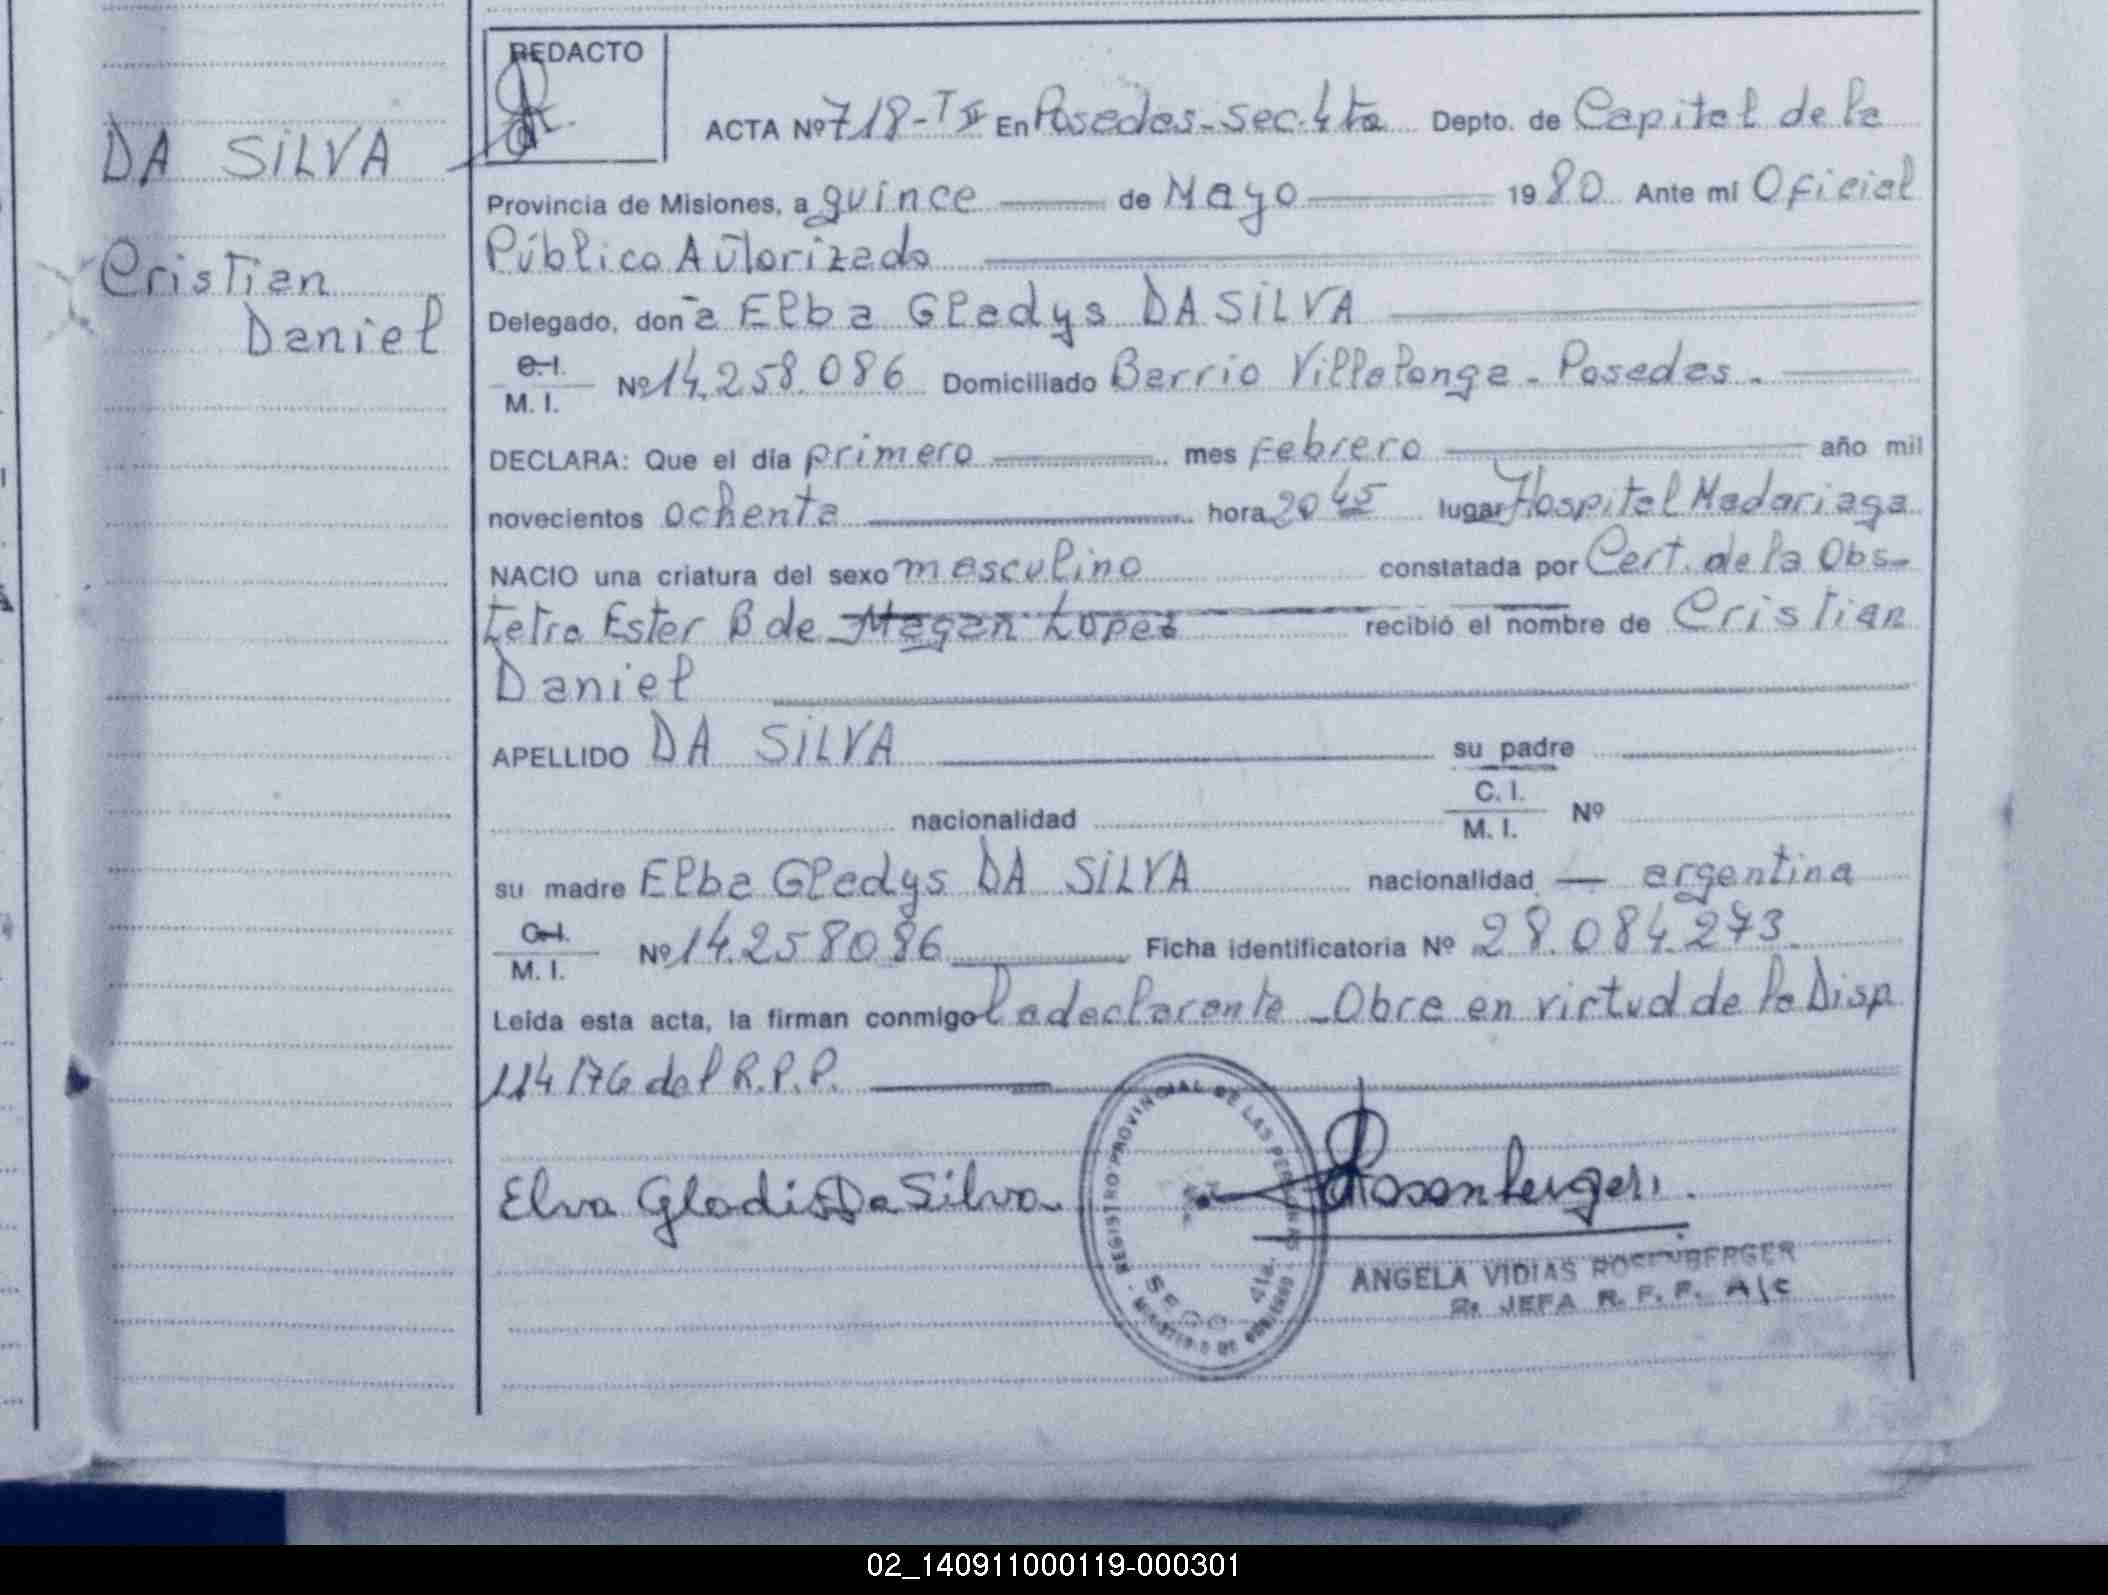 REDACTO
DA SILVA
Cristian
Daniel
ACTA Nº 718-T II En Posadas-Sec. 4ta Depto. de Capital de la
Provincia de Misiones, a quince de Mayo 1980. Ante mi Oficial
Público Autorizado
Delegado, don a Elba Gladys DA SILVA
C. I.
M. I. Nº 14.258.086 Domiciliado Barrio Villalonga - Posadas -
DECLARA: Que el día primero mes Febrero año mil
novecientos ochenta hora 20 45 lugar Hospital Madariaga
NACIO una criatura del sexo masculino constatada por Cert. de la Obs-
tetra Ester B de Magan Lopez recibió el nombre de Cristian
Daniel
APELLIDO DA SILVA su padre
nacionalidad C. I.
M. I. Nº
su madre Elba Gladys DA SILVA nacionalidad - argentina
C. I.
M. I. Nº 14.258086 Ficha identificatoria Nº 28.084.273
Leída esta acta, la firman conmigo la declarante - Obra en virtud de la Disp.
114/76 del R.P.P.
Elva Gladis Da Silva
Rosenberger
REGISTRO PROVINCIAL DE LAS PERSONAS
SECC 4ta.
MINISTERIO DE GOBIERNO
ANGELA VIDIAS ROSENBERGER
JEFA R. P. P. A/C
02_140911000119-000301